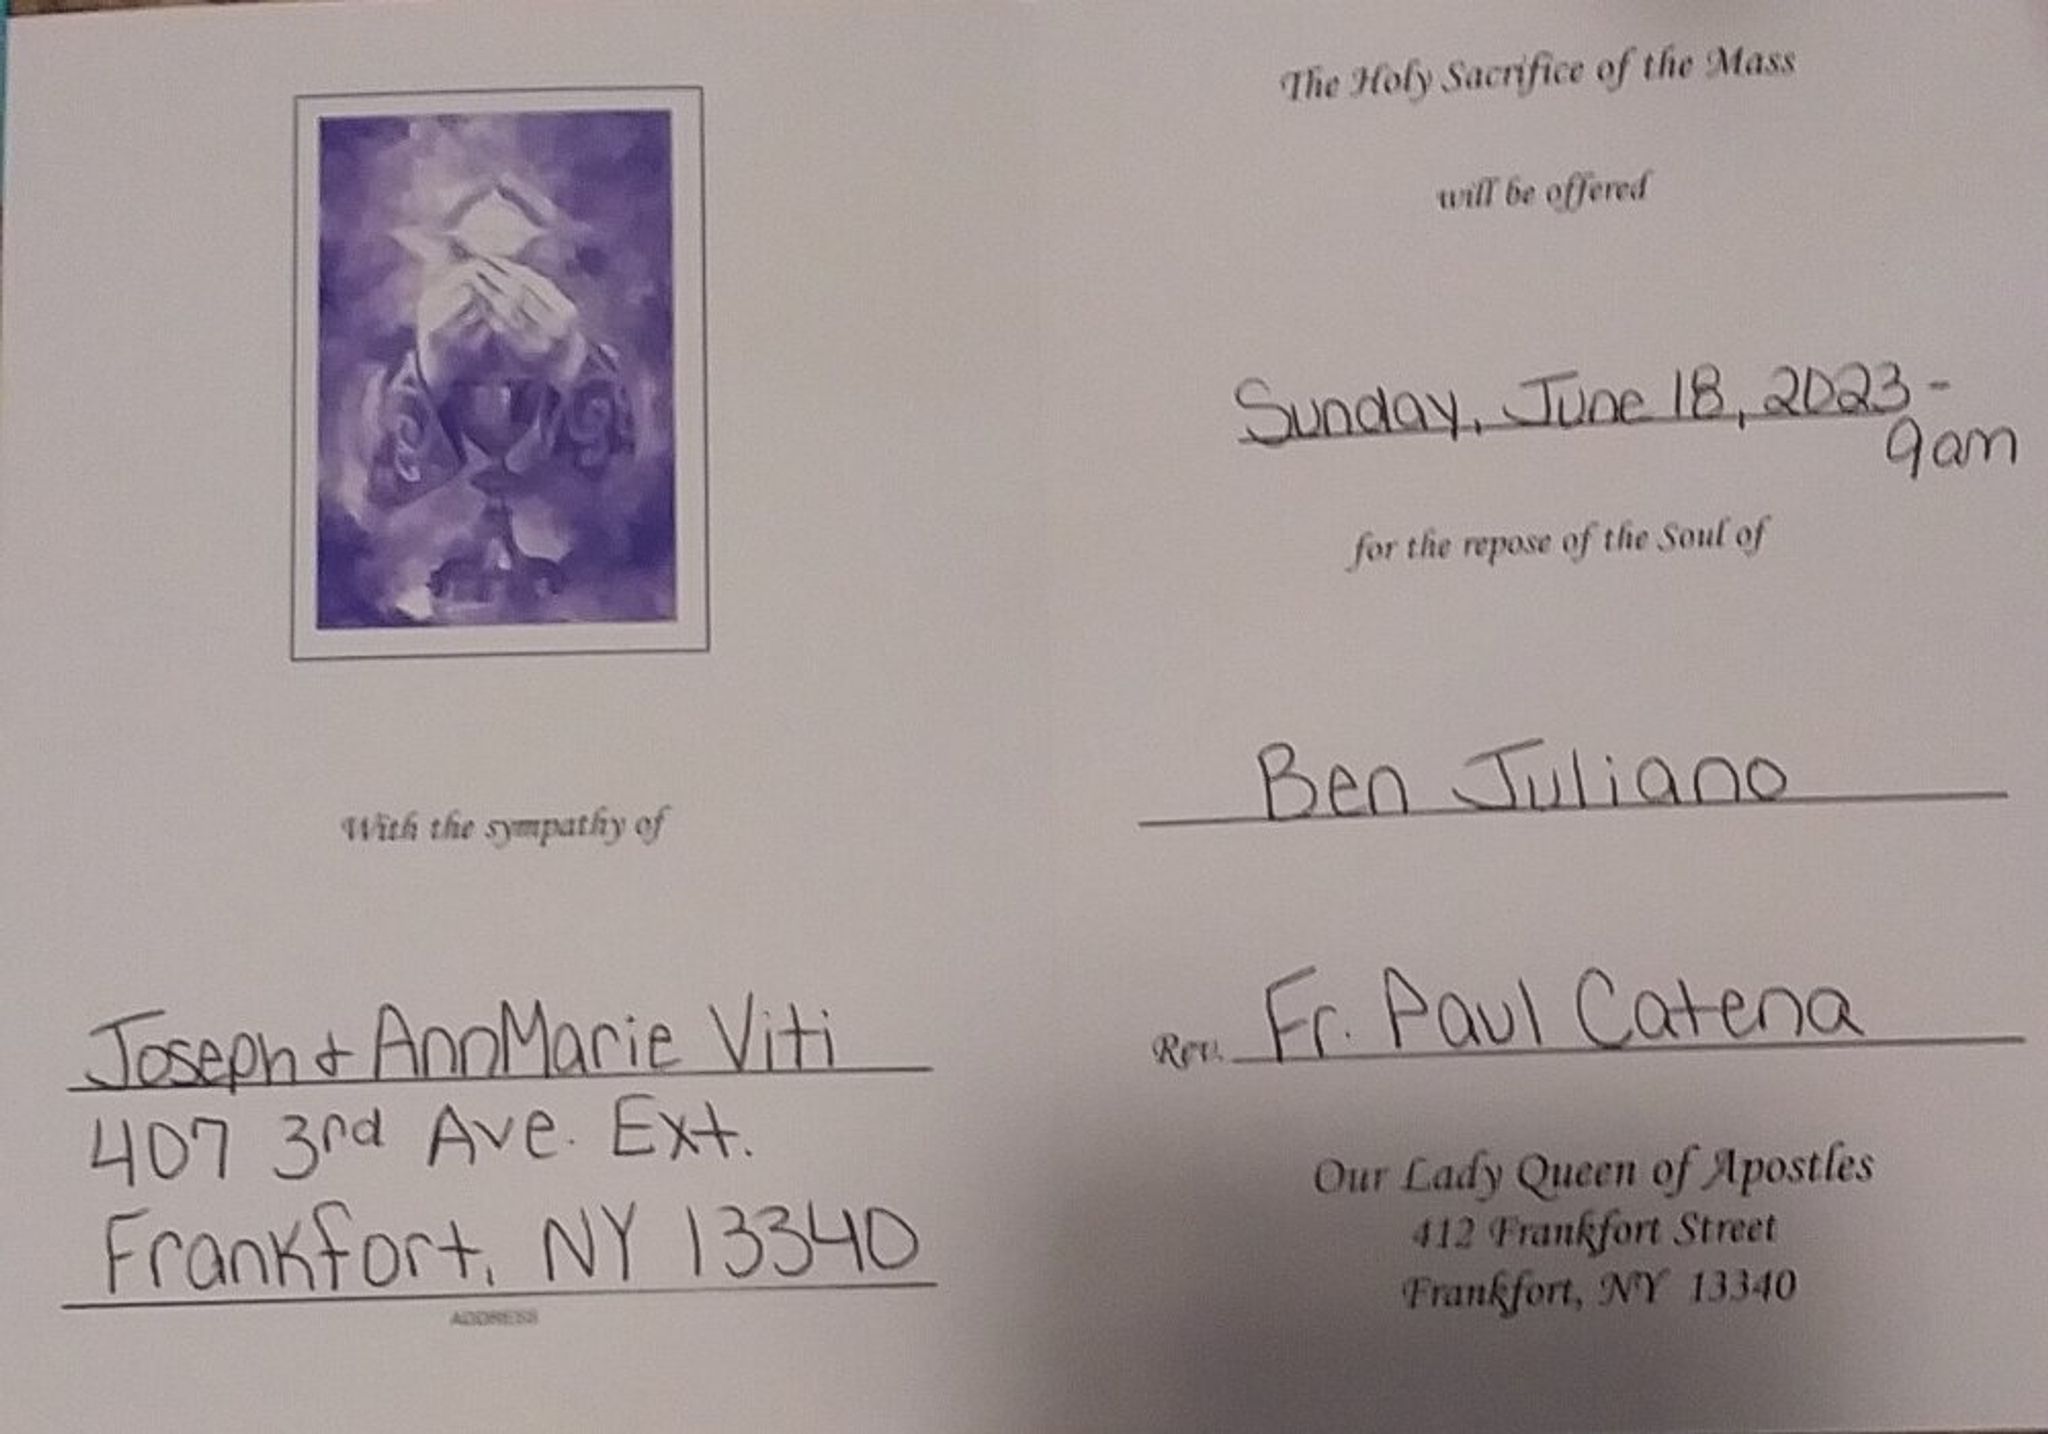 With the sympathy of
Joseph & AnnMarie Viti
407 3rd Ave. Ext.
Frankfort, NY 13340
ADDRESS
The Holy Sacrifice of the Mass
will be offered
Sunday, June 18, 2023 -
9am
for the repose of the Soul of
Ben Juliano
Rev. Fr. Paul Catena
Our Lady Queen of Apostles
412 Frankfort Street
Frankfort, NY 13340